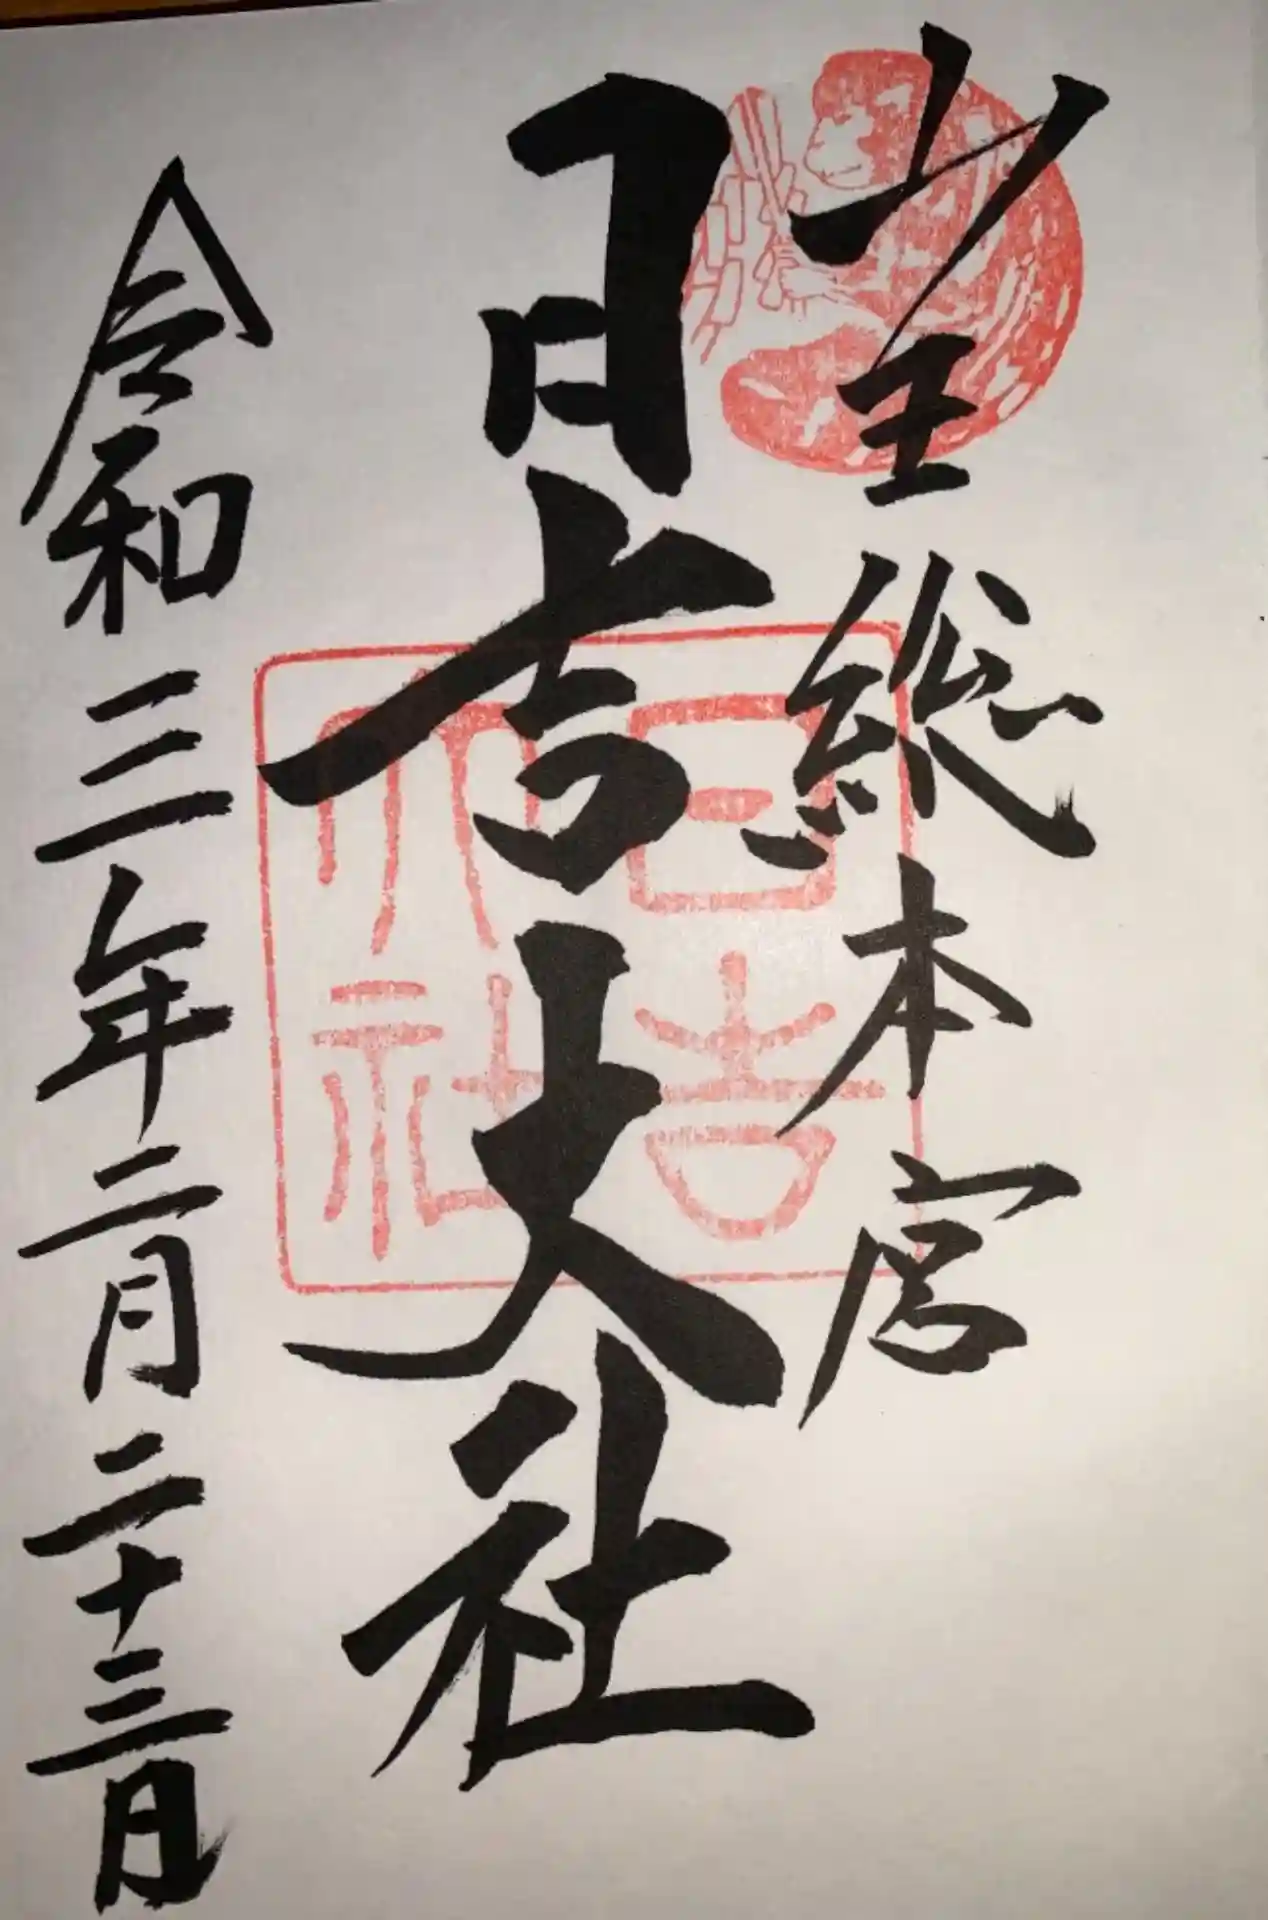 山王総本宮
日吉大社
日吉大社
令和三年二月二十三日